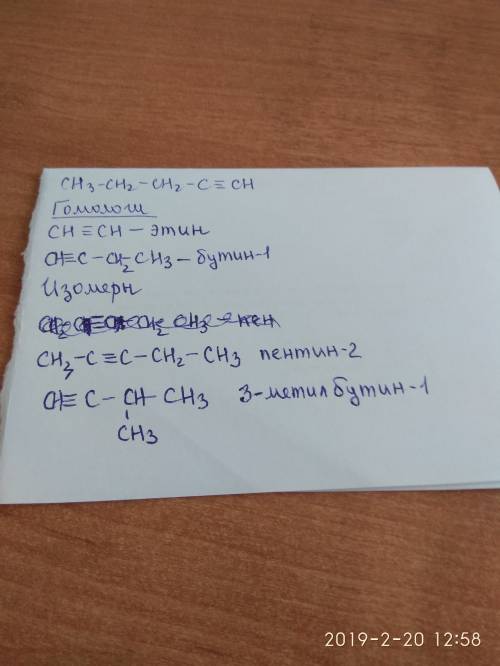 CH3-CH2-CH2-C≡CH
Гомологи
CH≡CH - этин
CH≡C-CH2CH3 - бутин-1
Изомеры
CH3-C≡C-CH2-CH3 пентин-2
CH≡C-CH-CH3 3-метилбутин-1
CH3
2019-2-20 12:58